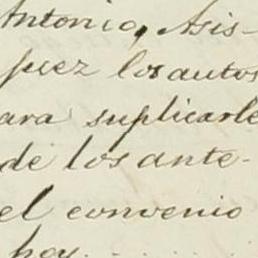 Antonio, Asis-
juez los autos
para suplicarle
de los ante-
el convenio
hoy